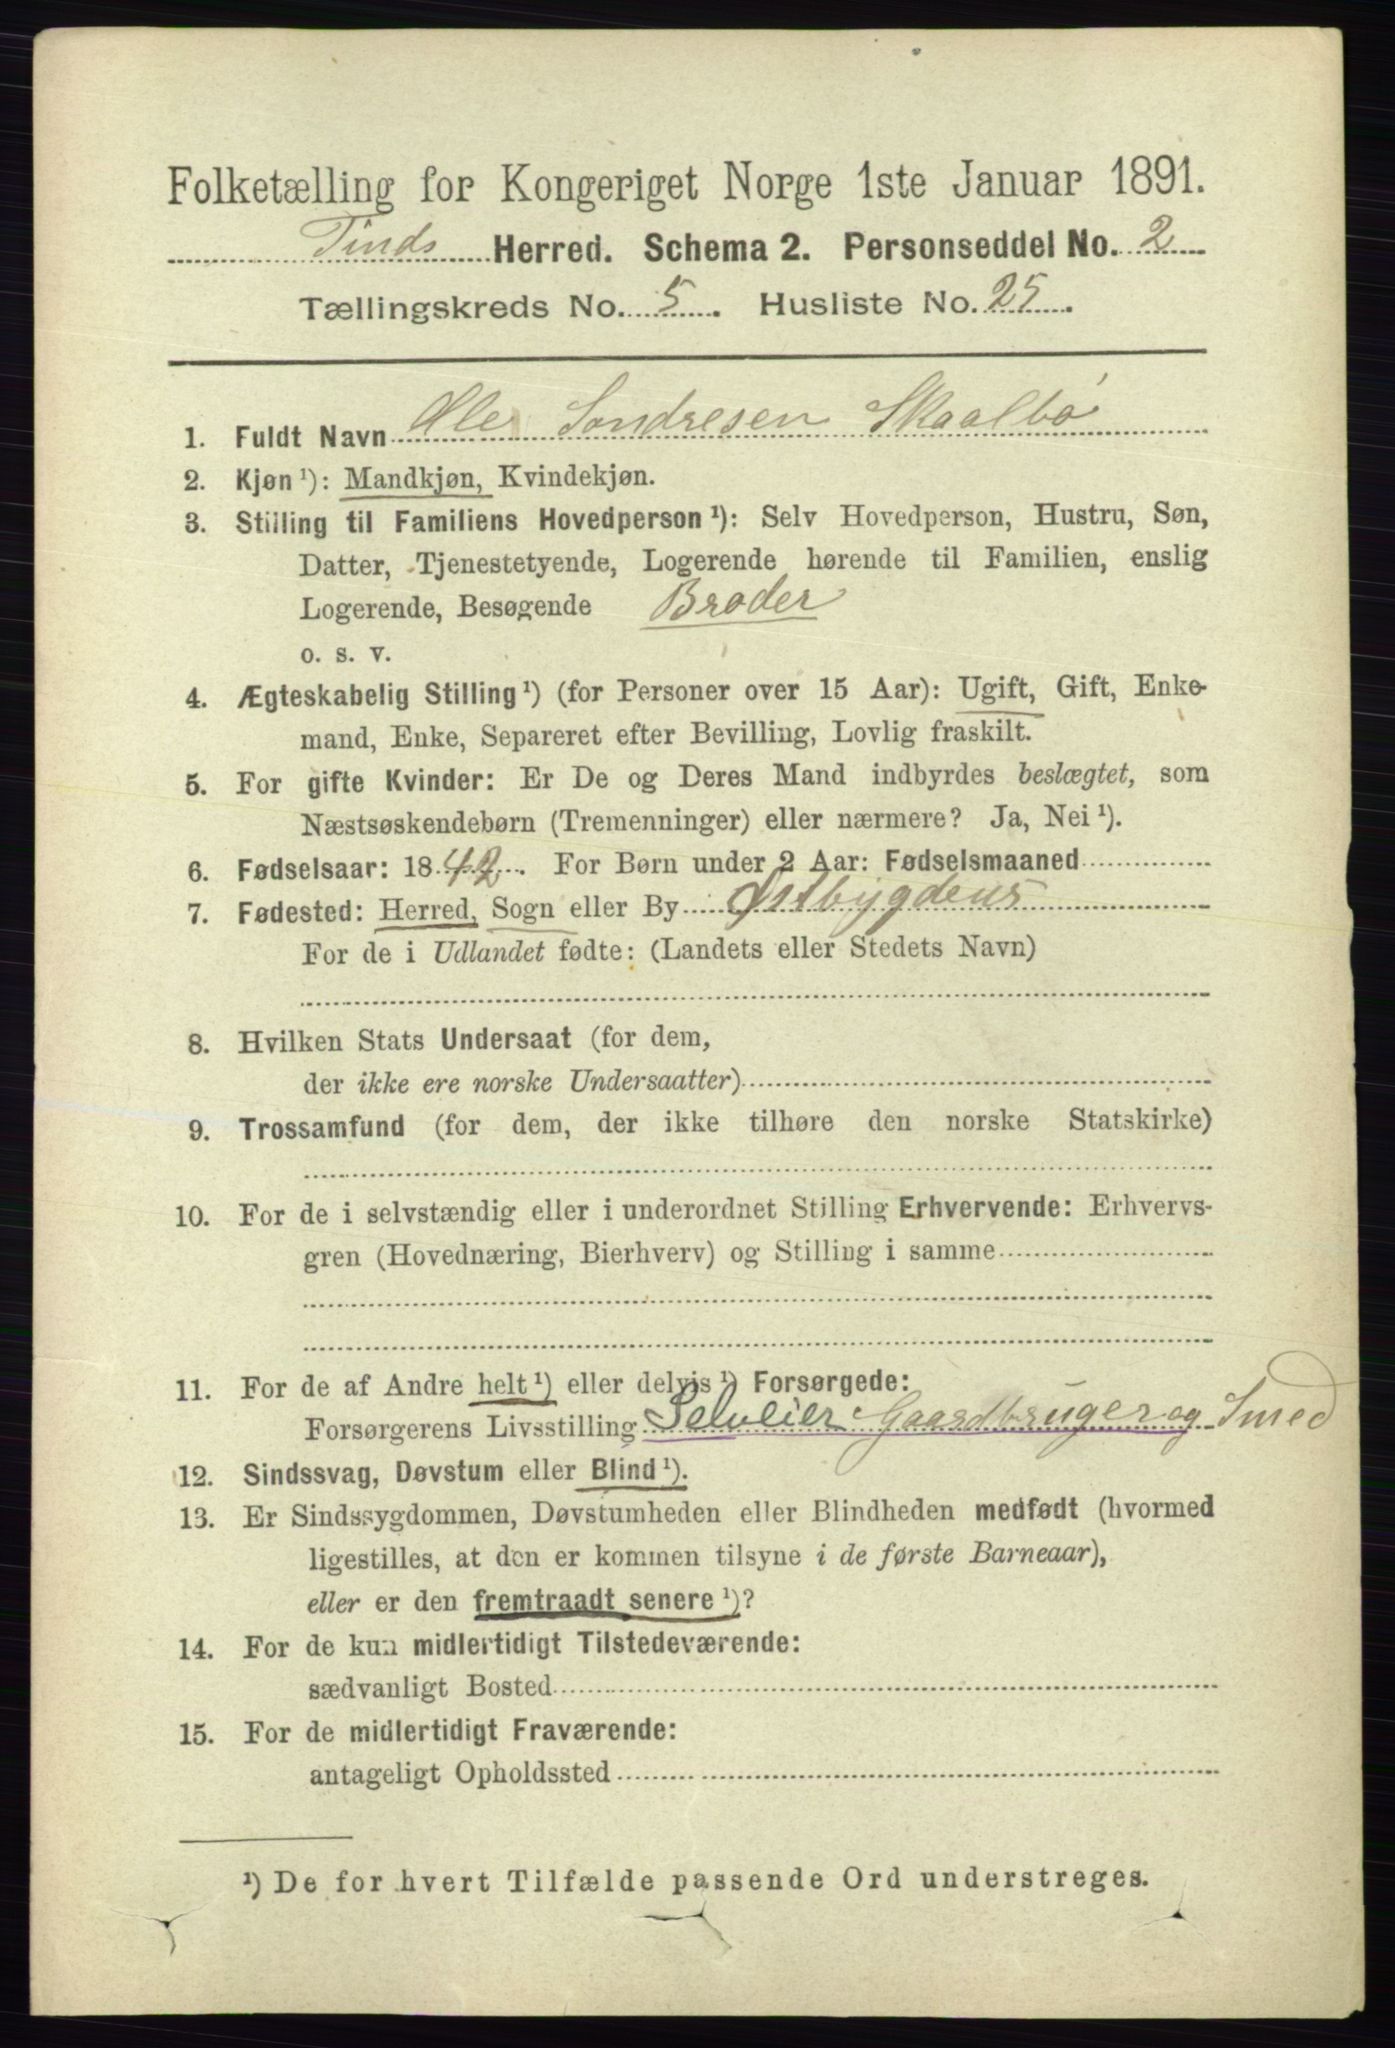 Folketælling for Kongeriget Norge 1ste Januar 1891.
Tinds Herred. Schema 2. Personseddel No. 2
Tællingskreds No. 5. Husliste No. 25.
1. Fuldt Navn Ole Sondresen Skaalbø
2. Kjøn ¹): Mandkjøn, Kvindekjøn.
3. Stilling til Familiens Hovedperson ¹): Selv Hovedperson, Hustru, Søn,
Datter, Tjenestetyende, Logerende hørende til Familien, enslig
Logerende, Besøgende Broder
o. s. v.
4. Ægteskabelig Stilling ¹) (for Personer over 15 Aar): Ugift, Gift, Enke-
mand, Enke, Separeret efter Bevilling, Lovlig fraskilt.
5. For gifte Kvinder: Er De og Deres Mand indbyrdes beslægtet, som
Næstsøskendebørn (Tremenninger) eller nærmere? Ja, Nei ¹).
6. Fødselsaar: 1842. For Børn under 2 Aar: Fødselsmaaned
7. Fødested: Herred, Sogn eller By Østbygdens
For de i Udlandet fødte: (Landets eller Stedets Navn)
8. Hvilken Stats Undersaat (for dem,
der ikke ere norske Undersaatter)
9. Trossamfund (for dem, der ikke tilhøre den norske Statskirke)
10. For de i selvstændig eller i underordnet Stilling Erhvervende: Erhvervs-
gren (Hovednæring, Bierhverv) og Stilling i samme
11. For de af Andre helt ¹) eller delvis ¹) Forsørgede:
Forsørgerens Livsstilling Selveier Gaardbruger og Smed
12. Sindssvag, Døvstum eller Blind ¹).
13. Er Sindssygdommen, Døvstumheden eller Blindheden medfødt (hvormed
ligestilles, at den er kommen tilsyne i de første Barneaar),
eller er den fremtraadt senere ¹)?
14. For de kun midlertidigt Tilstedeværende:
sædvanligt Bosted
15. For de midlertidigt Fraværende:
antageligt Opholdssted
¹) De for hvert Tilfælde passende Ord understreges.